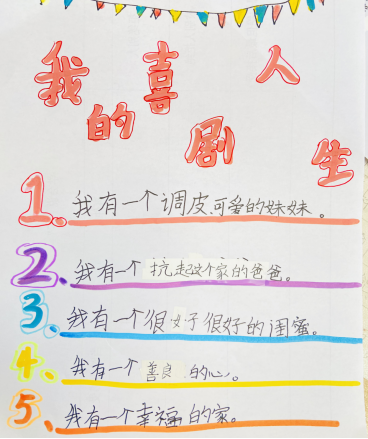 我的喜剧人生
1、我有一个调皮可爱的妹妹。
2、我有一个抗起这个家的爸爸。
3、我有一个很好很好的闺蜜。
4、我有一个善良的心。
5、我有一个幸福的家。